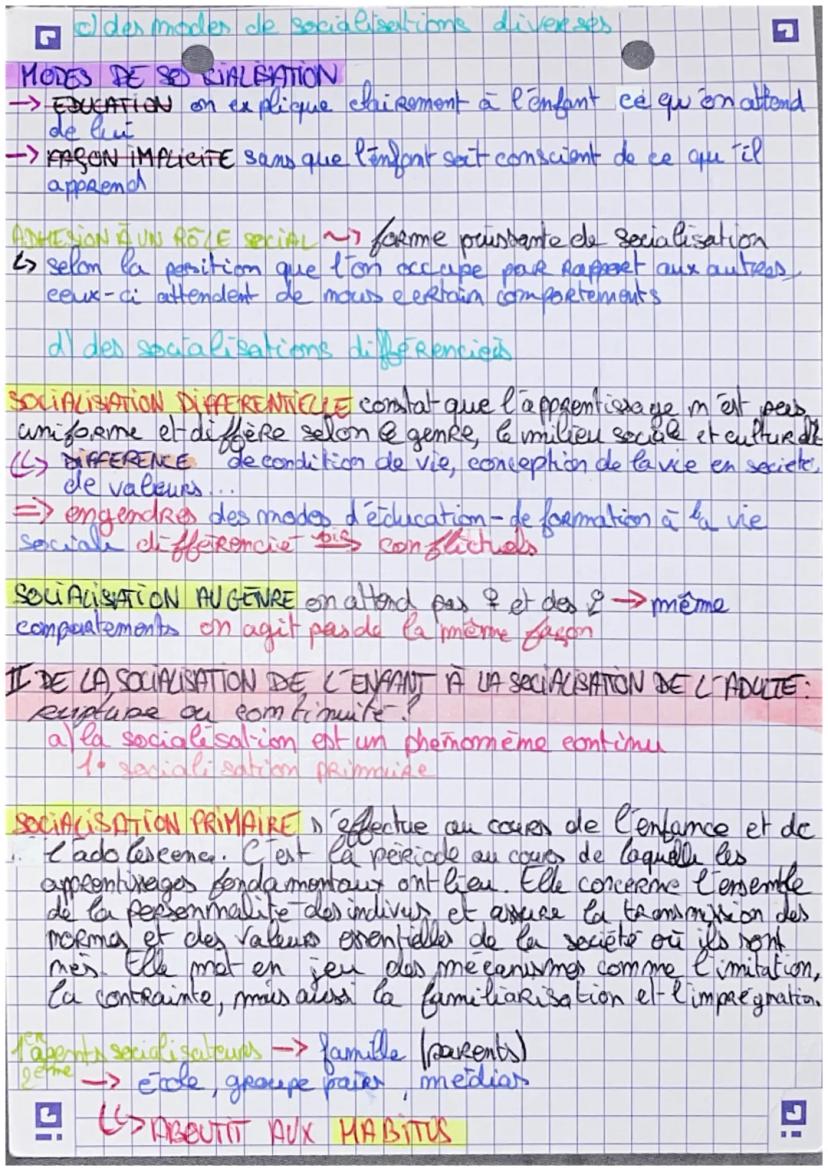 c) des modes de socialisations diverses
MODES DE SOCIALISATION
→ EDUCATION on explique clairement à l'enfant ce qu'on attend
de lui
→ FAÇON IMPLICITE sans que l'enfant soit conscient de ce qu'il
apprend
ADHESION À UN RÔLE SOCIAL ~> forme puissante de socialisation
↳ selon la position que l'on occupe par rapport aux autres,
ceux-ci attendent de nous certain comportements
d) des socialisations différenciées
SOCIALISATION DIFFERENTIELLE constat que l'apprentissage n'est pas
uniforme et diffère selon le genre, le milieu social et culturel
↳ DIFFERENCE de condition de vie, conception de la vie en société,
de valeurs...
=> engendres des modes d'éducation - de formation à la vie
sociale différencié bis conflictuels
SOCIALISATION AU GENRE on attend pas ♀ et des ♂ → même
comportements on agit pas de la même façon
II DE LA SOCIALISATION DE L'ENFANT À LA SOCIALISATION DE L'ADULTE :
rupture ou continuité ?
a) la socialisation est un phénomème continu
1• socialisation primaire
SOCIALISATION PRIMAIRE s'effectue au cours de l'enfance et de
l'adolescence. C'est la période au cours de laquelle les
apprentissages fondamentaux ont lieu. Elle concerne l'ensemble
de la personnalité des indivus et assure la transmission des
normes et des valeurs essentielles de la société où ils sont
nés. Elle met en jeu des mécanismes comme l'imitation,
la contrainte, mais aussi la familiarisation et l'imprégnation.
1er agents socialisateurs → famille (parents)
2ème → école, groupe pairs, médias
↳ ABOUTIT AUX HABITUS